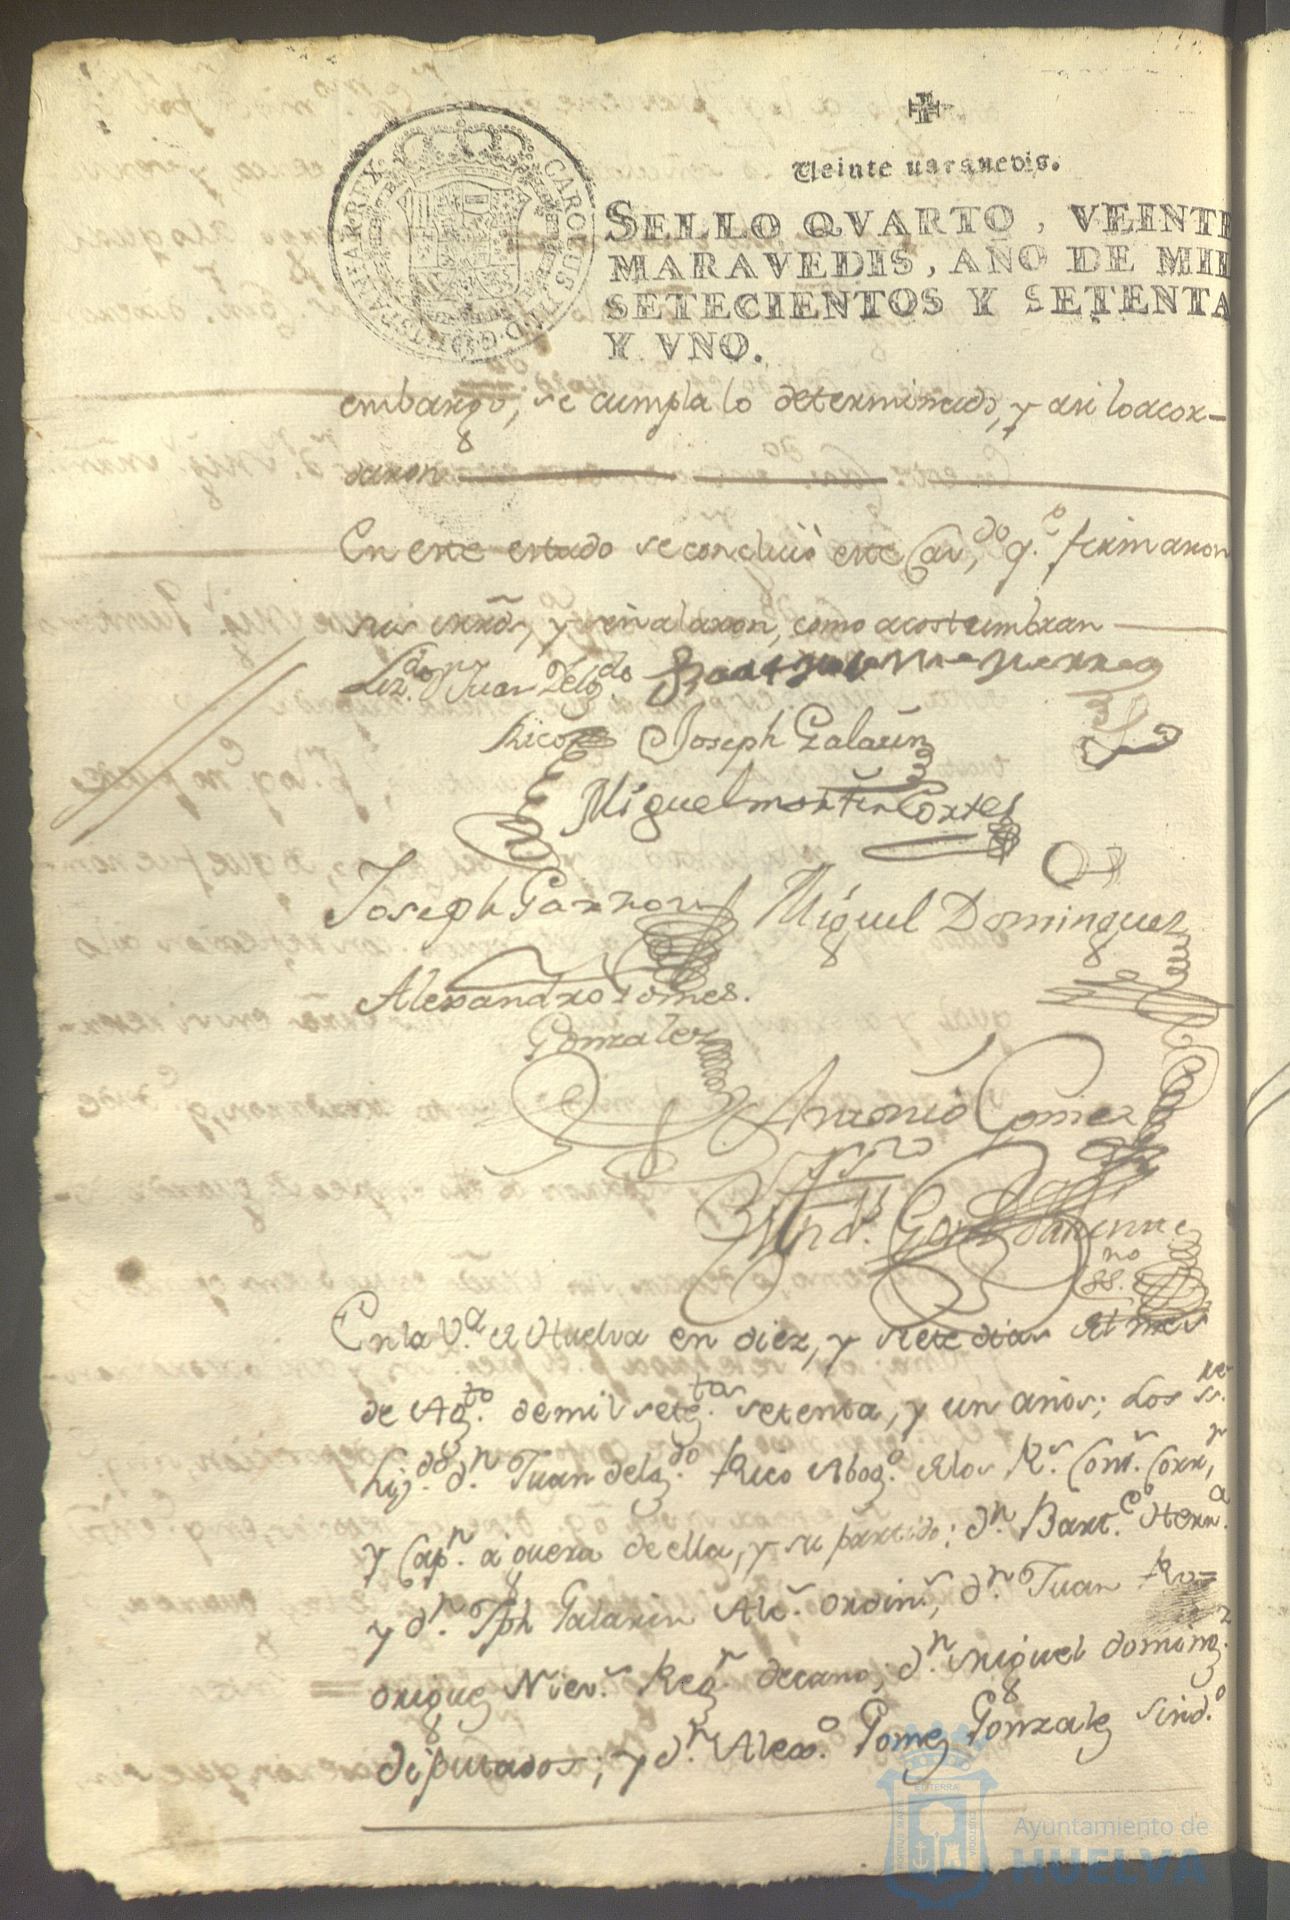 CAROLUS III D G HISPANIAR REX
Veinte maravedis.
SELLO QVARTO, VEINTE
MARAVEDIS, AÑO DE MIL
SETECIENTOS Y SETENTA
Y VNO.
embargo, se cumpla lo determinado, y asi lo acor-
daron
En este estado se concluió este Cav.do q.e firmaron
sus mrds, y señalaron, como acostumbran
Liz.do Dn Juan Delg.do
Rico Joseph Galarin
Miguel martin Cortes
Joseph Garzon Miguel Dominguez
Alexandro Gomes.
Gonzalez
Antonio Gomez
En la V.a de Huelva en diez, y siete dias del mes
de Ag.to de mil sete.tos setenta, y un años; Los ss.res
Liz.do d.n Juan delg.do Rico Abog.o de los R.s Con.s Corr.r
y Cap.n a guerra de ella, y su partido; d.n Bart.e Hern.a
y d.n Jph Galarin Alc.s ordin.s, d.n Juan Ro=
drigues Niev.s Reg.r decano; d.n Miguel doming.z
diputados; y d.n Alex.o Gomez Gonzalez Sind.o
Ayuntamiento de
HUELVA